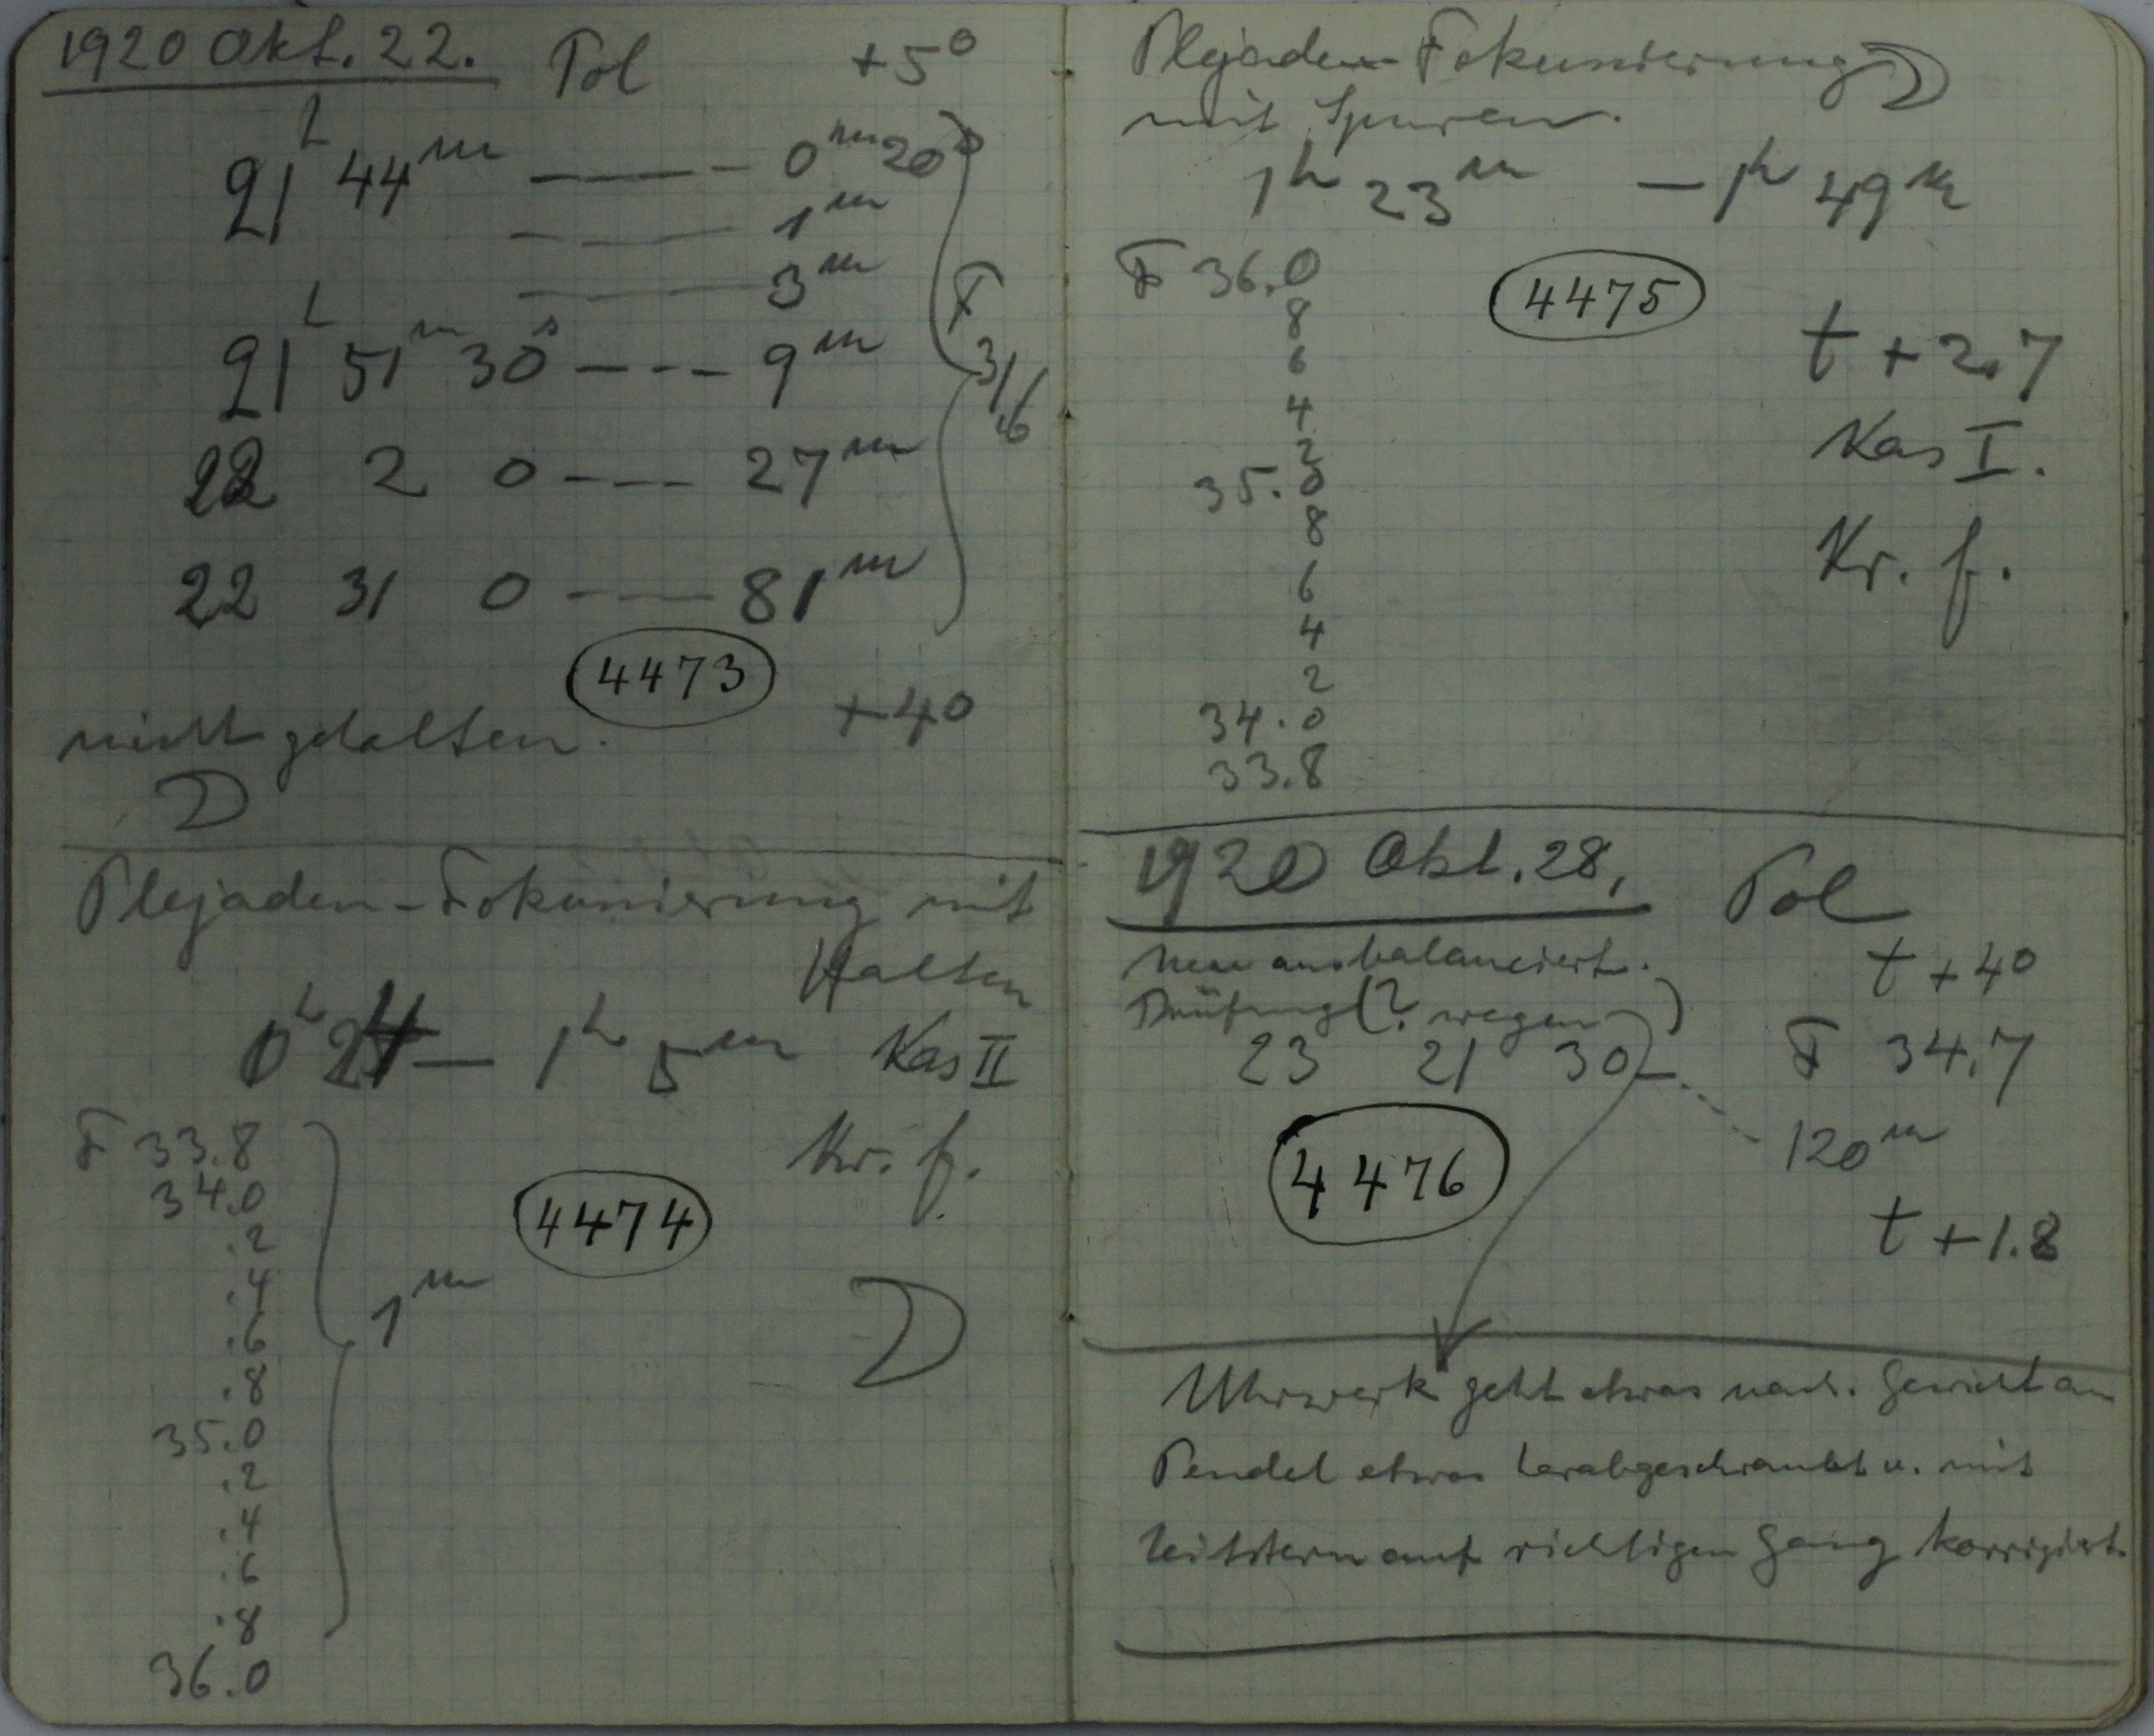 1920 Okt. 22. Pol +5°
21h 44m ———— 0m 20s
— — —— 1m
———— 3m
F 31.6
21h 51m 30s — - - — 9m
22 2 0 — - — 27m
22 31 0 — — — 81m
4473
nicht gehalten. +4°
D
Plejaden-Fokussierung mit
Halten
1h 5m Kas II
F 33.8 Kr. f.
34.0
.2 4474
.4 1m
.6 D
.8
35.0
.2
.4
.6
.8
36.0
Plejaden-Fokussierung D
mit Spuren.
1h 23m — 1h 49m
F 36.0 4475
8
6 t + 2.7
4
2 Kas I.
35.0
8 Kr. f.
6
4
2
34.0
33.8
1920 Okt. 28. Pol
Neu ausbalanciert. t + 4°
Prüfung (? wegen )
23 21 30 — F 34.7
120m
4476
t + 1.8
Uhrwerk geht etwas nach. Gewicht am
Pendel etwas herabgeschraubt u. mit
Leitstern auf richtigen Gang korrigiert.